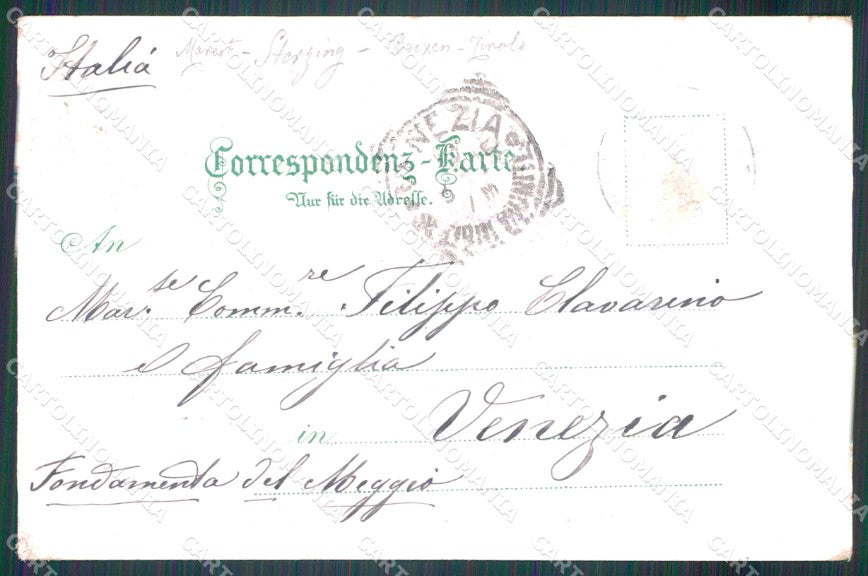 Italiá
- Sterzing - Brixen - Tirolo
VENEZIA
Correspondenz-Karte
Nur für die Adresse.
An
Mar.se Comm.re Filippo Clavarino
e famiglia
in Venezia
Fondamenta del Meggio
CARTOLINOMANIA